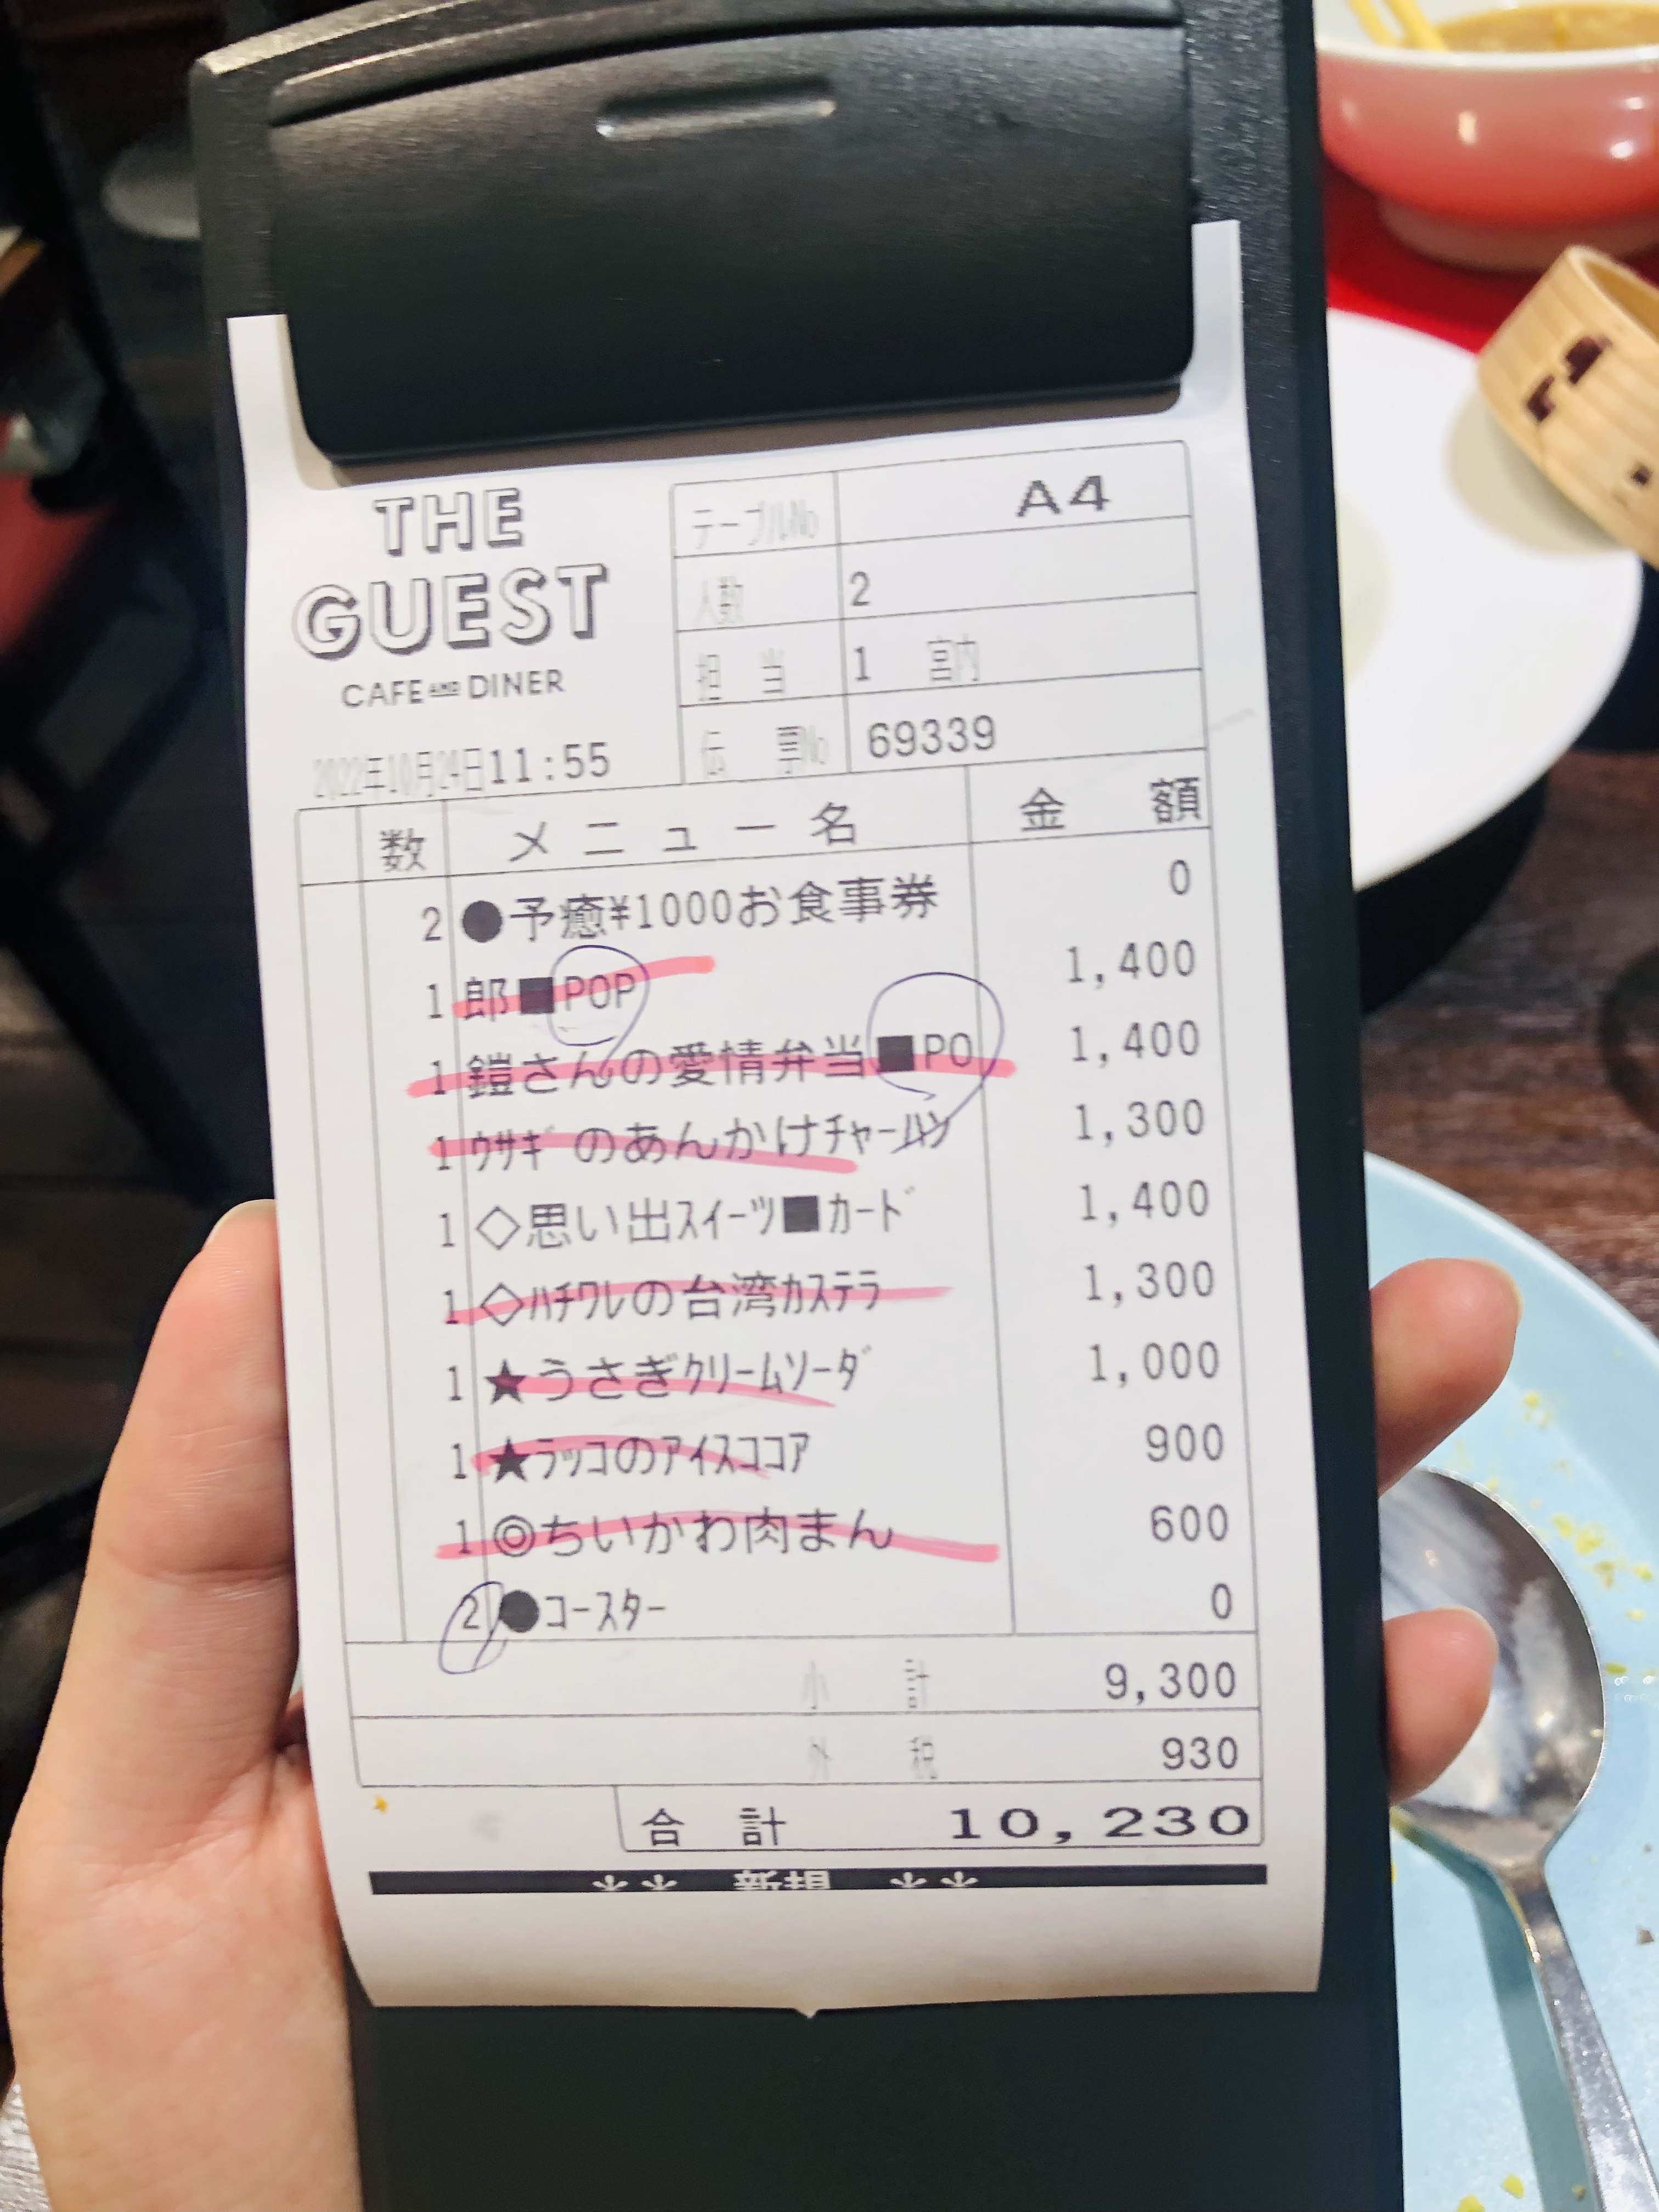 THE
GUEST
CAFE AND DINER
テーブルNo A4
人数 2
担 当 1 宮内
伝 票No 69339
2022年10月24日11:55
数 メニュー名 金 額
2 ●予癒¥1000お食事券 0
1 郎■POP 1,400
1 鎧さんの愛情弁当■PO 1,400
1 ｳｻｷﾞのあんかけﾁｬｰﾊﾝ 1,300
1 ◇思い出ｽｲｰﾂ■ｶｰﾄﾞ 1,400
1 ◇ﾊﾁﾜﾚの台湾ｶｽﾃﾗ 1,300
1 ★うさぎｸﾘｰﾑｿｰﾀﾞ 1,000
1 ★ﾗｯｺのｱｲｽｺｺｱ 900
1 ◎ちいかわ肉まん 600
2 ●ｺｰｽﾀｰ 0
小 計 9,300
外 税 930
合 計 10,230
** 新規 **